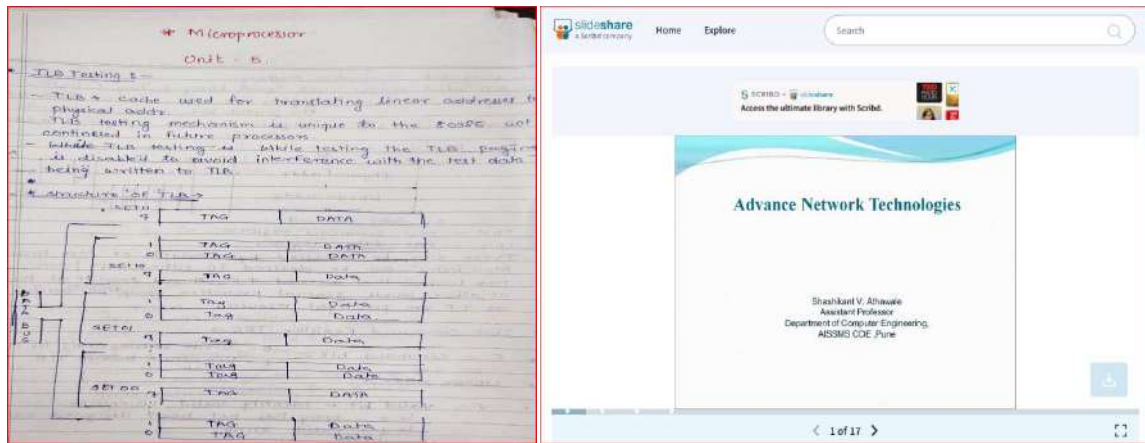 * Microprocessor
Unit - 5
* TLB Testing :-
- TLB → cache used for translating linear addresses to
physical addr.
TLB testing mechanism is unique to the 80386 not
continued in future processors
- While TLB testing is while testing the TLB paging
is disabled to avoid interference with the test data
being written to TLB.
* Structure OF TLB →
SET11
TAG DATA
1 TAG DATA
0 TAG DATA
SET10
TAG Data
1 Tag Data
0 Tag Data
SET01
Tag Data
1 Tag Data
0 Tag Data
SET 00
TAG DATA
1 TAG Data
0 TAG Data
DATA BUS
slideshare
a Scribd company
Home Explore Search
SCRIBD + slideshare
Access the ultimate library with Scribd.
Advance Network Technologies
Shashikant V. Athawale
Assistant Professor
Department of Computer Engineering,
AISSMS COE ,Pune
1 of 17